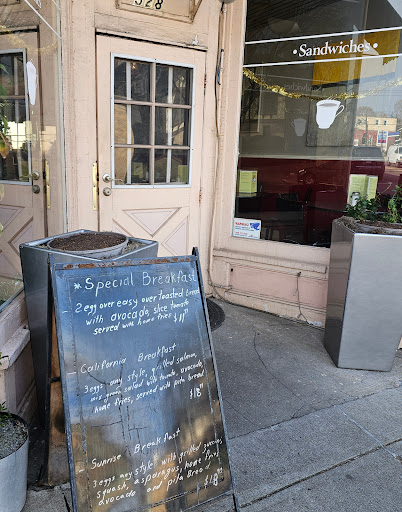 328
•Sandwiches•
*Special Breakfast
2 egg over easy over Toasted bread
with avocado, slice tomato
served with home fries $17
California Breakfast
3 eggs any style, grilled salmon,
mix green salad with tomato, avocado,
home fries, served with pita bread
$18
Sunrise Breakfast
3 eggs any style with grilled zucchini,
squash, asparagus, home fries
avocado and pita Bread
$18